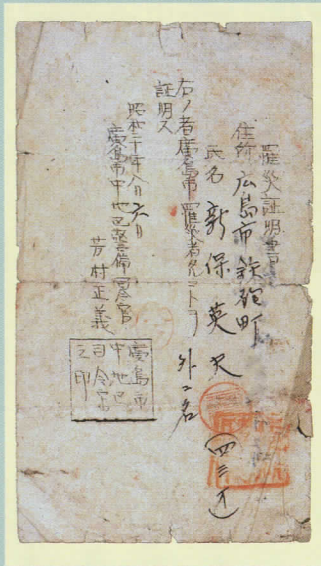 罹災証明書
住所 広島市鉄砲町
氏名 新保英夫 外二名 (四三才)
右ノ者廣島市ニ罹災者タルコトヲ
証明ス
昭和二十年八月六日
廣島市中地区警備司令官
芳村正義
廣島市
中地区
司令官
之印